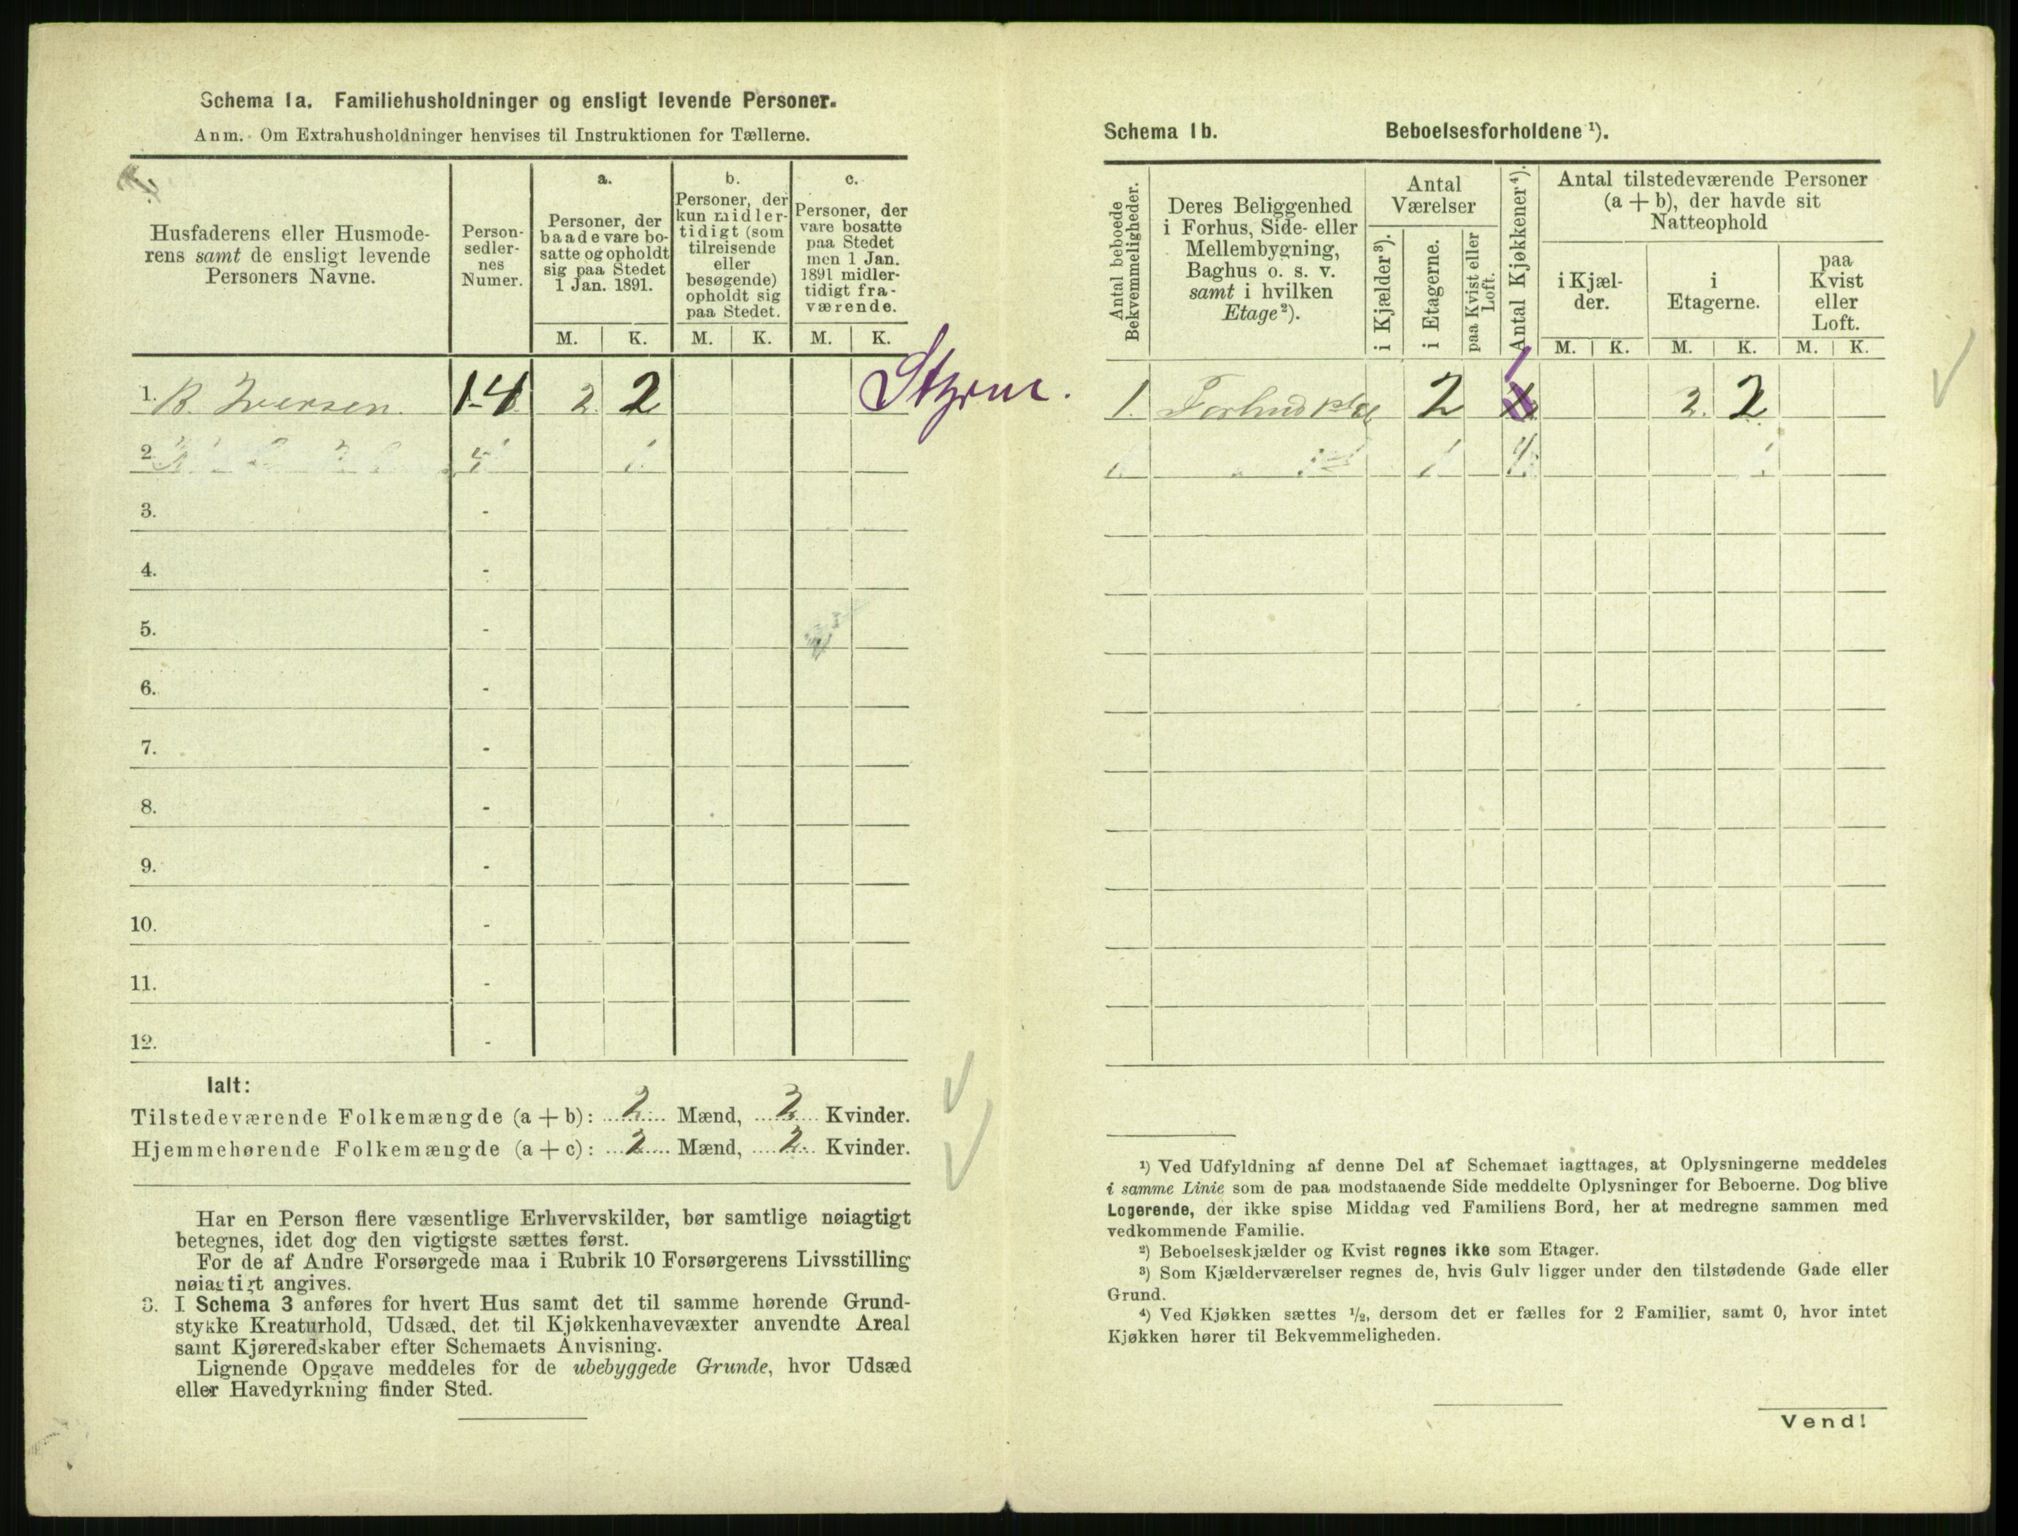 Schema 1a. Familiehusholdninger og ensligt levende Personer.
Anm. Om Extrahusholdninger henvises til Instruktionen for Tællerne.
Husfaderens eller Husmode-
rens samt de ensligt levende
Personers Navne.
Person-
sedler-
nes
Numer.
a.
Personer, der
baade vare bo-
satte og opholdt
sig paa Stedet
1 Jan. 1891.
b.
Personer, der
kun midler-
tidigt (som
tilreisende
eller
besøgende)
opholdt sig
paa Stedet.
c.
Personer, der
vare bosatte
paa Stedet
men 1 Jan.
1891 midler-
tidigt fra-
værende.
M. K. M. K. M. K.
1. B. Iversen. 1-4 2. 2
2.
3. -
4. -
5. -
6. -
7. -
8. -
9. -
10. -
11. -
12. -
Ialt:
Tilstedeværende Folkemængde (a + b): 2 Mænd, 2 Kvinder.
Hjemmehørende Folkemængde (a + c): 2 Mænd, 2 Kvinder.
Har en Person flere væsentlige Erhvervskilder, bør samtlige nøiagtigt
betegnes, idet dog den vigtigste sættes først.
For de af Andre Forsørgede maa i Rubrik 10 Forsørgerens Livsstilling
nøiagtigt angives.
3. I Schema 3 anføres for hvert Hus samt det til samme hørende Grund-
stykke Kreaturhold, Udsæd, det til Kjøkkenhavevæxter anvendte Areal
samt Kjøreredskaber efter Schemaets Anvisning.
Lignende Opgave meddeles for de ubebyggede Grunde, hvor Udsæd
eller Havedyrkning finder Sted.
Schema 1b. Beboelsesforholdene ¹).
Antal beboede
Bekvemmeligheder.
Deres Beliggenhed
i Forhus, Side- eller
Mellembygning,
Baghus o. s. v.
samt i hvilken
Etage²).
Antal
Værelser
i Kjælder³).
i Etagerne.
paa Kvist eller
Loft.
Antal Kjøkkener⁴).
Antal tilstedeværende Personer
(a + b), der havde sit
Natteophold
i Kjæl-
der.
i
Etagerne.
paa
Kvist
eller
Loft.
M. K. M. K. M. K.
1. 2 2. 2
¹) Ved Udfyldning af denne Del af Schemaet iagttages, at Oplysningerne meddeles
i samme Linie som de paa modstaaende Side meddelte Oplysninger for Beboerne. Dog blive
Logerende, der ikke spise Middag ved Familiens Bord, her at medregne sammen med
vedkommende Familie.
²) Beboelseskjælder og Kvist regnes ikke som Etager.
³) Som Kjælderværelser regnes de, hvis Gulv ligger under den tilstødende Gade eller
Grund.
⁴) Ved Kjøkken sættes ½, dersom det er fælles for 2 Familier, samt 0, hvor intet
Kjøkken hører til Bekvemmeligheden.
Vend!